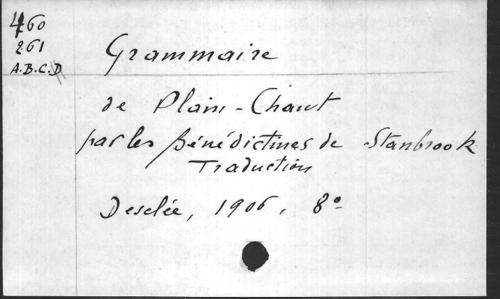 460
261
A.B.C.D
Grammaire
de Plain-Chant
par les Bénédictines de Stanbrook
Traduction
Desclée, 1906, 8°